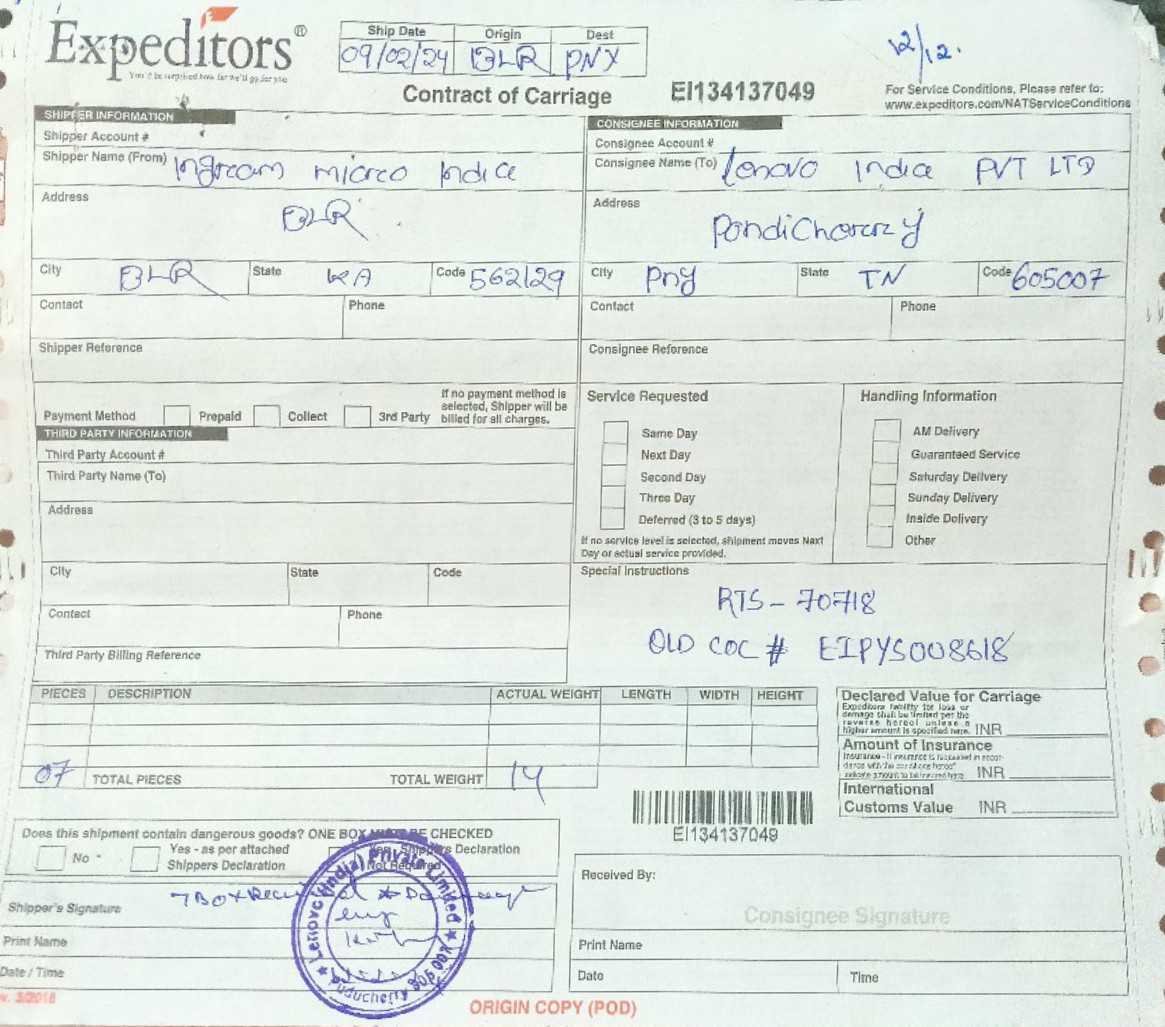 Expeditors®
You'd be surprised how far we'll go for you
Ship Date Origin Dest
09/02/24 BLR PNY
12/12.
Contract of Carriage EI134137049
For Service Conditions, Please refer to:
www.expeditors.com/NATServiceConditions
SHIPPER INFORMATION
Shipper Account #
Shipper Name (From) Ingream micro India
Address
BLR
City BLR State KA Code 562129
Contact Phone
Shipper Reference
CONSIGNEE INFORMATION
Consignee Account #
Consignee Name (To) Lenovo India PVT LTD
Address
PondiCherry
City Pny State TN Code 605007
Contact Phone
Consignee Reference
Payment Method Prepaid Collect 3rd Party
If no payment method is
selected, Shipper will be
billed for all charges.
THIRD PARTY INFORMATION
Third Party Account #
Third Party Name (To)
Address
City State Code
Contact Phone
Third Party Billing Reference
Service Requested
Same Day
Next Day
Second Day
Three Day
Deferred (3 to 5 days)
If no service level is selected, shipment moves Next
Day or actual service provided.
Handling Information
AM Delivery
Guaranteed Service
Saturday Delivery
Sunday Delivery
Inside Delivery
Other
Special Instructions
RTS - 70718
OLD COC # EIPYS008618
PIECES DESCRIPTION ACTUAL WEIGHT LENGTH WIDTH HEIGHT
07 TOTAL PIECES TOTAL WEIGHT 14
Declared Value for Carriage
Expeditors liability for loss or
damage shall be limited per the
reverse hereof unless a
higher amount is specified here. INR
Amount of Insurance
Insurance - If insurance is requested in accor-
dance with the conditions hereof
indicate amount to be insured here INR
International
Customs Value INR
EI134137049
Does this shipment contain dangerous goods? ONE BOX MUST BE CHECKED
No Yes - as per attached
Shippers Declaration
Yes Shippers Declaration
Not Required
Shipper's Signature 7 Box
Print Name
Date / Time
Lenovo (India) Private Limited
Puducherry 605 007
Received By:
Consignee Signature
Print Name
Date Time
v. 3/2018
ORIGIN COPY (POD)